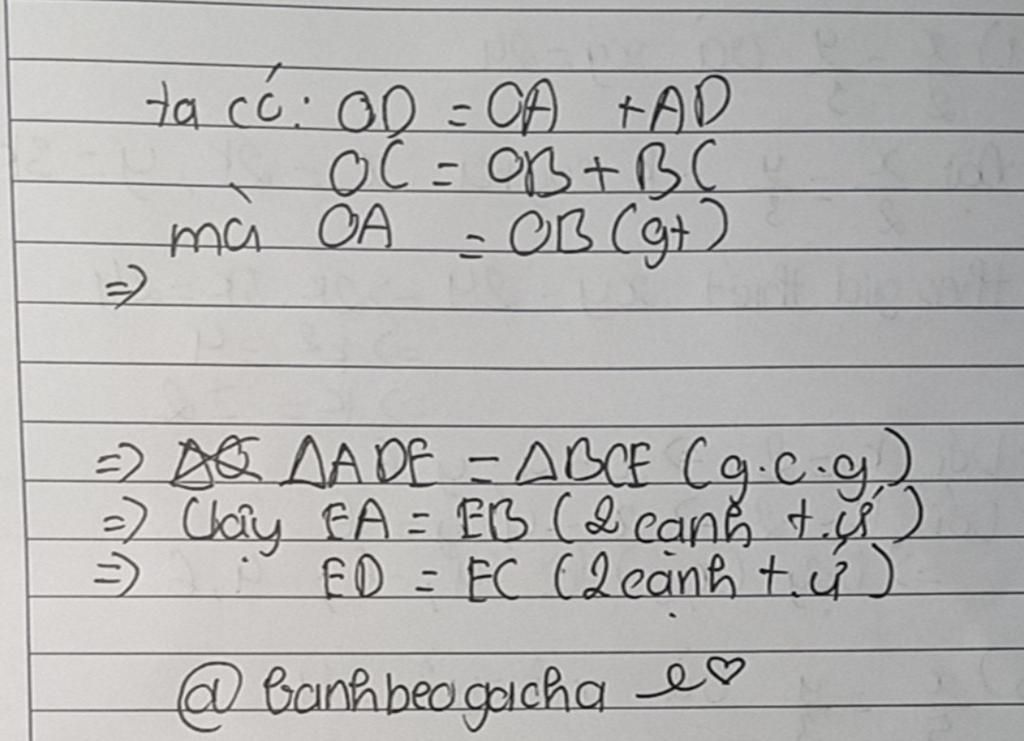 ta có: OD = OA + AD
OC = OB + BC
mà OA = OB (gt)
=>
=> ΔADE = ΔBCE (g.c.g)
=> Vậy EA = EB (2 cạnh t.ứ)
=> ED = EC (2 cạnh t.ứ)
@banhbeogacha ♡